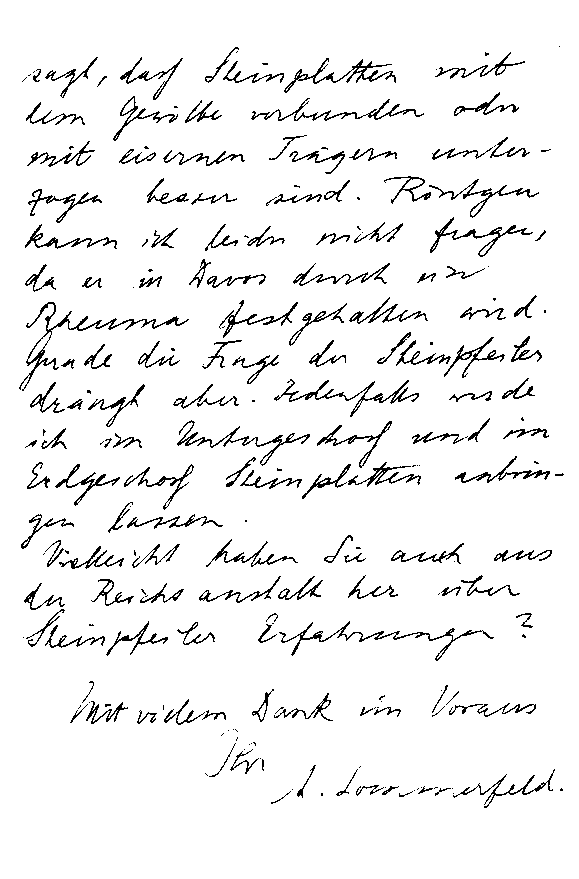 sagt, daß Steinplatten mit
dem Gewölbe verbunden oder
mit eisernen Trägern unter-
zogen besser sind. Röntgen
kann ich leider nicht fragen,
da er in Davos durch ein
Rheuma festgehalten wird.
Grade die Frage der Steinpfeiler
drängt aber. Jedenfalls werde
ich im Untergeschoß und im
Erdgeschoß Steinplatten anbrin-
gen lassen.
Vielleicht haben Sie auch aus
der Reichsanstalt her über
Steinpfeiler Erfahrungen?
Mit vielem Dank im Voraus
Ihr
A. Sommerfeld.